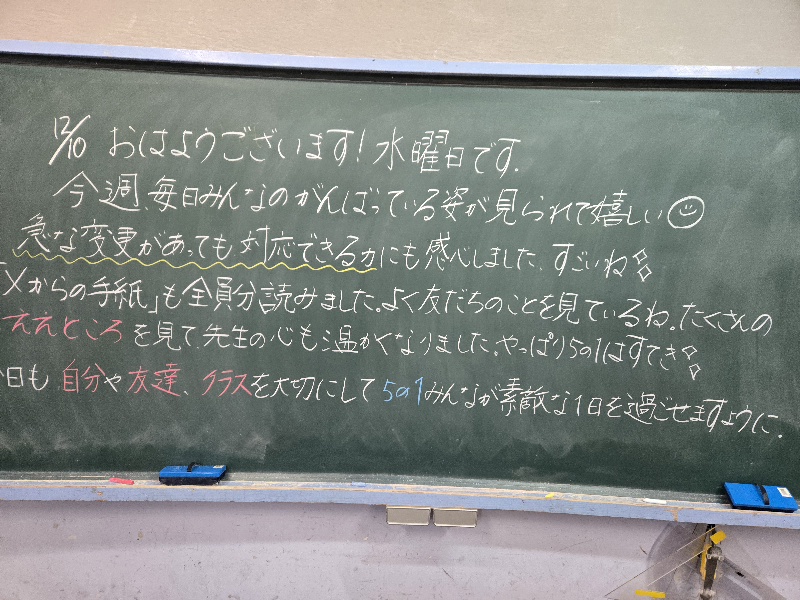 12/10 おはようございます! 水曜日です.
今週、毎日みんなのがんばっている姿が見られて嬉しい
急な変更があっても対応できる力にも感心しました、すごいね
「Xからの手紙」も全員分読みました。よく友だちのことを見ているね。たくさんの
ええところを見て、先生の心も温かくなりました。やっぱり5の1はすてき
日も、自分や友達、クラスを大切にして5の1みんなが素敵な1日を過ごせますように.